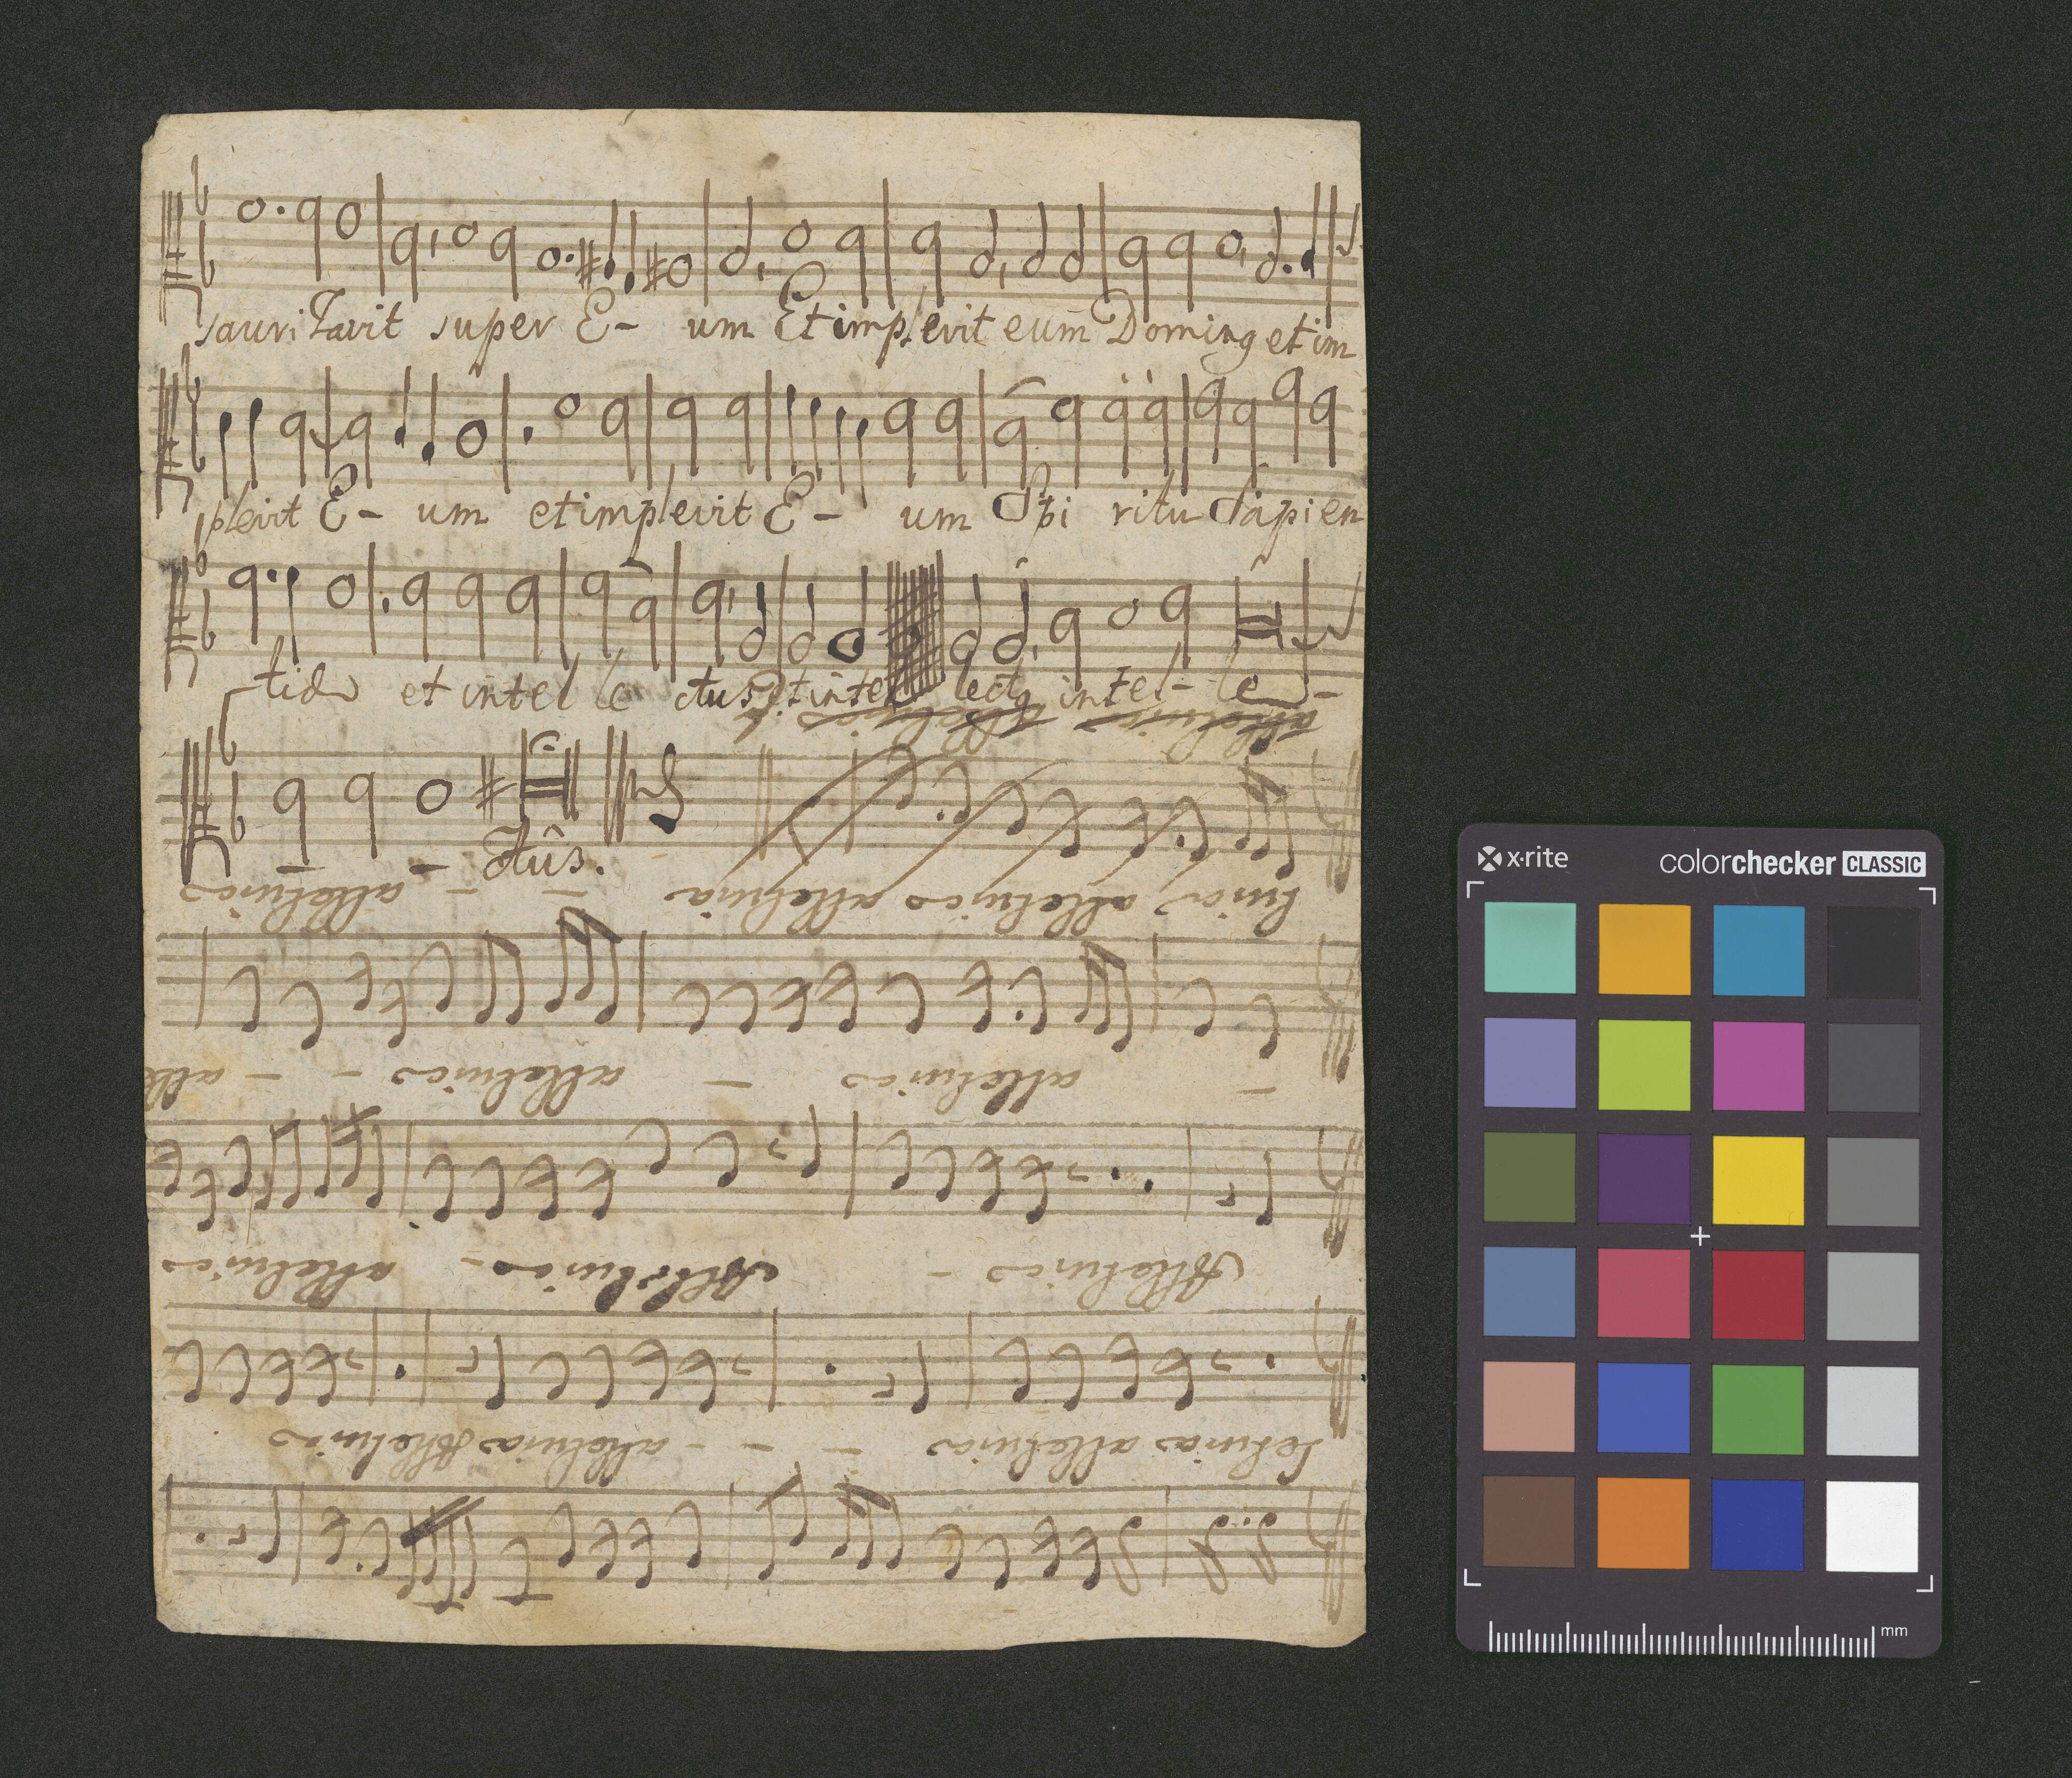 sauriZavit super E- um Et implevit eum Doming et im
plevit E- um et implevit E- um Spi ritu Sapien
tiæ et intel le ctus et intel lectg intel- le -
- - ctûs.
alleluia alleluia
luia alleluia alleluia alleluia - - - alleluia
- alleluia - alleluia - - all
Alleluia - Alleluia - alleluia
leluia alleluia - - - alleluia Alleluia
x·rite
colorchecker CLASSIC
mm